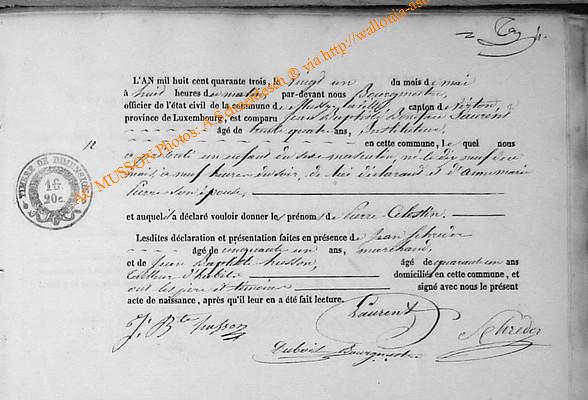 L'AN mil huit cent quarante trois, le vingt un du mois de mai
à huit heures du matin, par-devant nous Bourgmestre,
officier de l'état civil de la commune de Mussy-la-ville, canton de virton,
province de Luxembourg, est comparu Jean Baptiste Laurent
âgé de trente quatre ans, Instituteur,
12
en cette commune, lequel nous
a présenté un enfant du sexe masculin, né le dix neuf de ce
mois, à neuf heures du soir, de lui déclarant et d'Anne marie
Pierre son épouse,
et auquel il a déclaré vouloir donner les prénoms de Pierre Célestin.
Lesdites déclaration et présentation faites en présence de Jean
âgé de cinquante un ans, marchand,
et de Jean Baptiste husson, âgé de quarante un ans
tailleur d'habits domiciliés en cette commune, et
ont les père et témoins signé avec nous le présent
acte de naissance, après qu'il leur en a été fait lecture.
Laurent
J. Bte husson
Dubois Bourgmestre
TIMBRE DE DIMENSION
20c.
MUSSON Photos: A. ® via http://wallonia-as